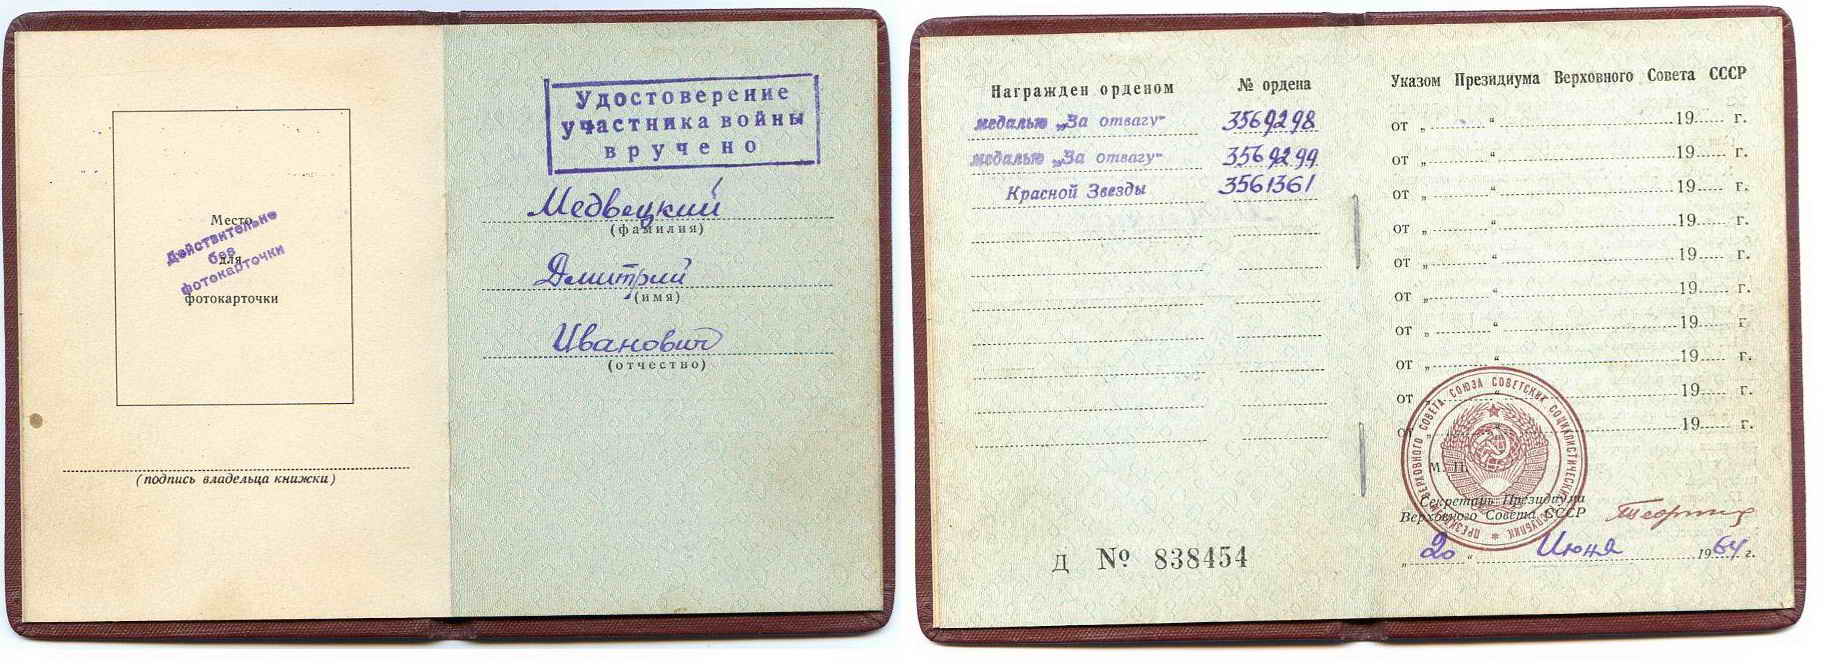 Место
для
фотокарточки
Действительно
без
фотокарточки
(подпись владельца книжки)
Удостоверение
участника войны
вручено
Медвецкий
(фамилия)
Дмитрий
(имя)
Иванович
(отчество)
Награжден орденом № ордена
медалью „За отвагу“ 3569298
медалью „За отвагу“ 3569299
Красной Звезды 3561361
Д № 838454
Указом Президиума Верховного Совета СССР
от „ “ 19 г.
от „ “ 19 г.
от „ “ 19 г.
от „ “ 19 г.
от „ “ 19 г.
от „ “ 19 г.
от „ “ 19 г.
от „ “ 19 г.
от „ “ 19 г.
от „ “ 19 г.
М. П.
ПРЕЗИДИУМ ВЕРХОВНОГО СОВЕТА СОЮЗА СОВЕТСКИХ СОЦИАЛИСТИЧЕСКИХ РЕСПУБЛИК
Секретарь Президиума
Верховного Совета СССР
„20“ Июня 1964 г.